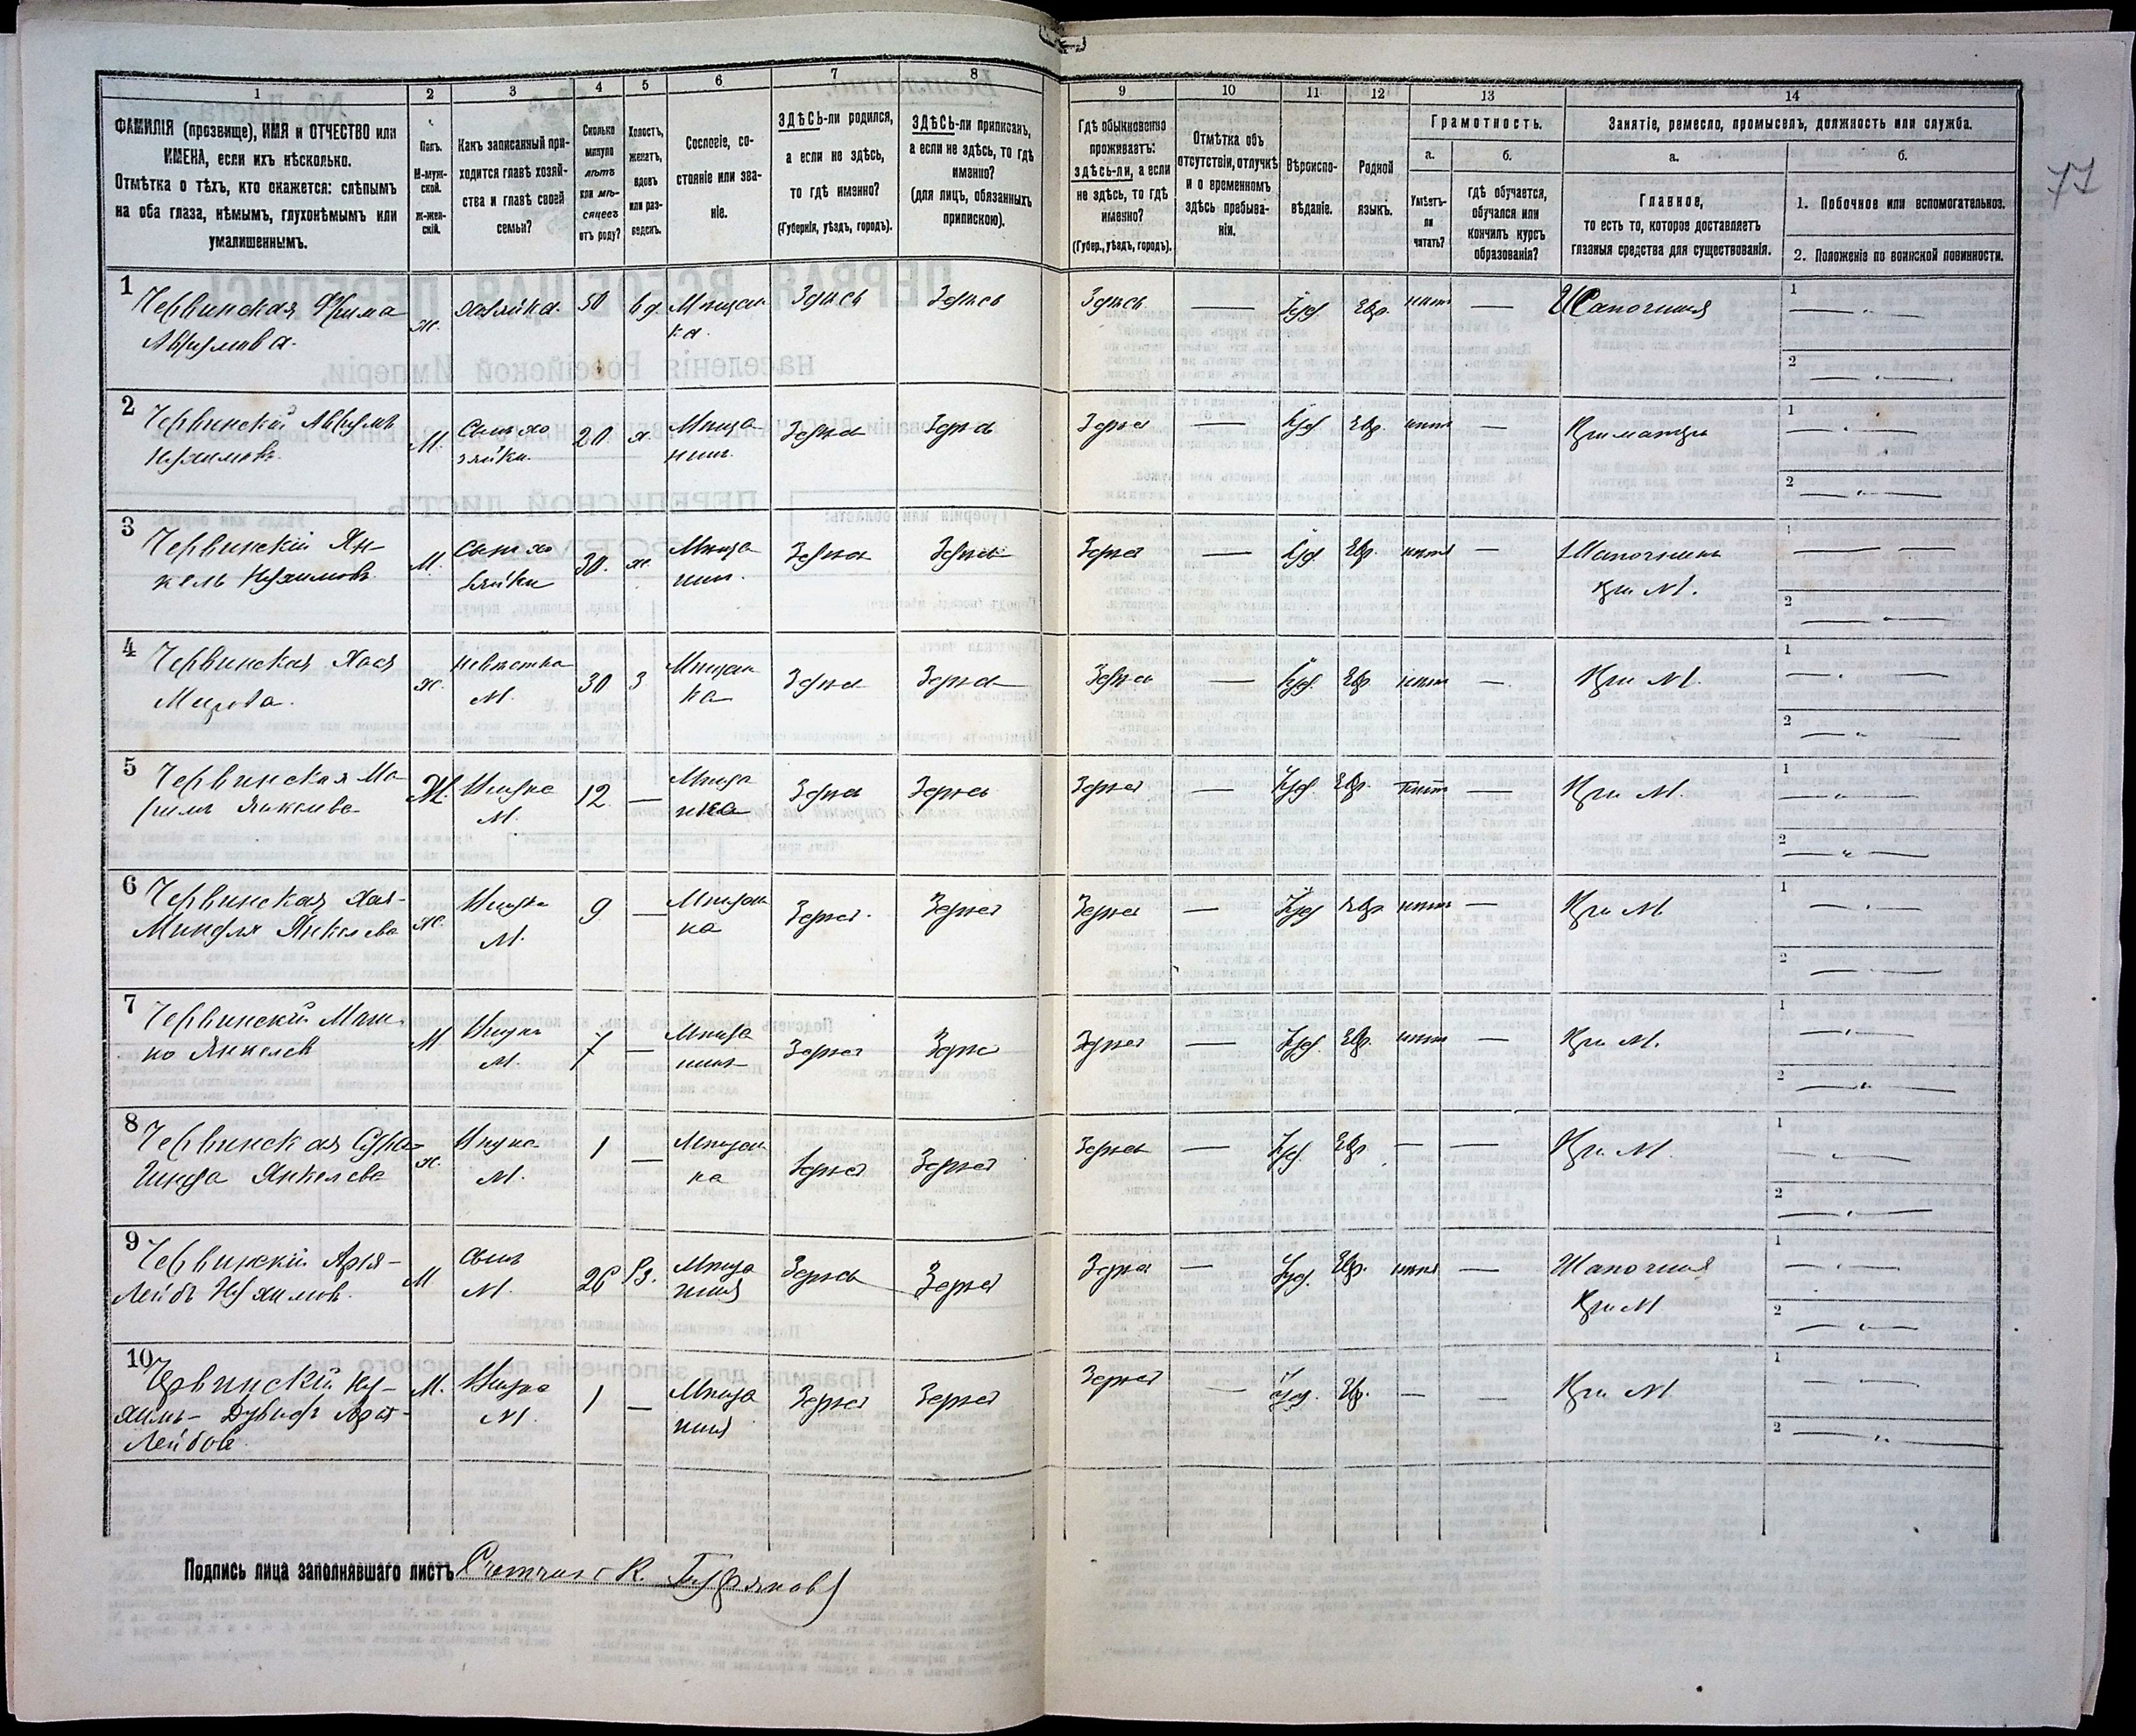 77
1 2 3 4 5 6 7 8 9 10 11 12 13 14
ФАМИЛІЯ (прозвище), ИМЯ и ОТЧЕСТВО или
ИМЕНА, если ихъ нѣсколько.
Отмѣтка о тѣхъ, кто окажется: слѣпымъ
на оба глаза, нѣмымъ, глухонѣмымъ или
умалишеннымъ.
Полъ.
М-муж-
ской.
Ж-жен-
скій.
Какъ записанный при-
ходится главѣ хозяй-
ства и главѣ своей
семьи?
Сколько
минуло
лѣтъ
или мѣ-
сяцевъ
отъ роду?
Холостъ,
женатъ,
вдовъ
или раз-
веденъ.
Сословіе, со-
стояніе или зва-
ніе.
ЗДѢСЬ-ли родился,
а если не здѣсь,
то гдѣ именно?
(Губернія, уѣздъ, городъ).
ЗДѢСЬ-ли приписанъ,
а если не здѣсь, то гдѣ
именно?
(для лицъ, обязанныхъ
припискою).
Гдѣ обыкновенно
проживаетъ:
здѣсь-ли, а если
не здѣсь, то гдѣ
именно?
(Губер., уѣздъ, городъ).
Отмѣтка объ
отсутствіи, отлучкѣ
и о временномъ
здѣсь пребыва-
ніи.
Вѣроиспо-
вѣданіе.
Родной
языкъ.
Грамотность.
а.
Умѣетъ-
ли
читать?
б.
гдѣ обучается,
обучался или
кончилъ курсъ
образованія?
Занятіе, ремесло, промыселъ, должность или служба.
а.
Главное,
то есть то, которое доставляетъ
главныя средства для существованія.
б.
1. Побочное или вспомогательное.
2. Положеніе по воинской повинности.
1 Червинская Фрима
Аврумова.
ж. хозяйка. 50 вд. Мѣщан
ка. Здѣсь Здѣсь Здѣсь — Іуд. Евр. нѣтъ — Шапочница
1 — " —
2 — " —
2 Червинскій Аврумъ
Нухимовъ.
М. Сынъ хо
зяйки 20 х. Мѣща
нинъ. Здѣсь Здѣсь Здѣсь — Іуд Евр. нѣтъ — При матери
1 — " —
2 — " —
3 Червинскій Ян-
кель Нухимовъ
М. Сынъ хо
зяйки 30. ж. Мѣща
нин. Здѣсь Здѣсь Здѣсь — Іуд. Евр. нѣтъ — Шапочникъ
При М.
1 — —
2 — " —
4 Червинская Хася
ж. невѣстка
М. 30 З Мѣщан
ка Здѣсь Здѣсь Здѣсь — Іуд. Евр нѣтъ — При М.
1 — " —
2 — " —
5 Червинская Ма-
Янкелева
Ж. Внучка
М. 12 — Мѣща
нка Здѣсь Здѣсь Здѣсь — Іуд. Евр. нѣтъ — При М.
1 — " —
2 — " —
6 Червинская Хая-
Миндля Янкелева
ж. Внучка
М. 9 — Мѣщан
ка Здѣсь Здѣсь Здѣсь — Іуд Евр нѣтъ — При М.
1 — " —
2 — " —
7 Червинскій
Янкелев
М Внукъ
М. 7 — Мѣща
нинъ Здѣсь Здѣсь Здѣсь — Іуд. Евр. нѣтъ — При М.
1 — " —
2 — " —
8 Червинская Сура-
Гинда Янкелева
ж. Внука
М. 1 — Мѣщан
ка Здѣсь Здѣсь Здѣсь — Іуд. Евр — — При М.
1 — " —
2 — " —
9 Червинскій Арія-
Лейбъ Нухимов.
М Сынъ
М. 26 Мѣща
нинъ Здѣсь Здѣсь Здѣсь — Іуд. Евр. нѣтъ — Шапочник
При М
1 — " —
2 — " —
10 Червинскій Ну-
химъ- Дувидъ Арія-
Лейбов
М. Внука
М. 1 — Мѣща
нинъ Здѣсь Здѣсь Здѣсь — Іуд. Евр. — — При М
1 — " —
2 — " —
Подпись лица заполнявшаго листъ Счетчикъ К.